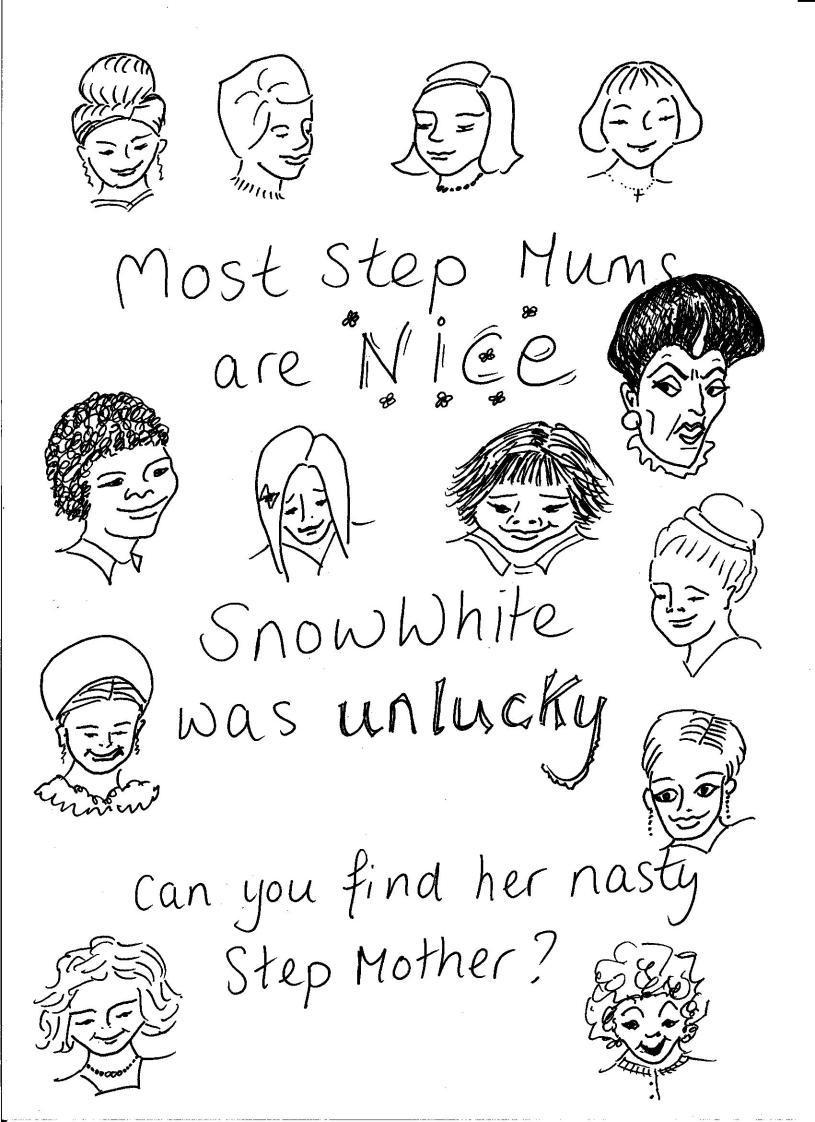 Most Step Mums
are Nice
SnowWhite
was unlucky
Can you find her nasty
Step Mother?